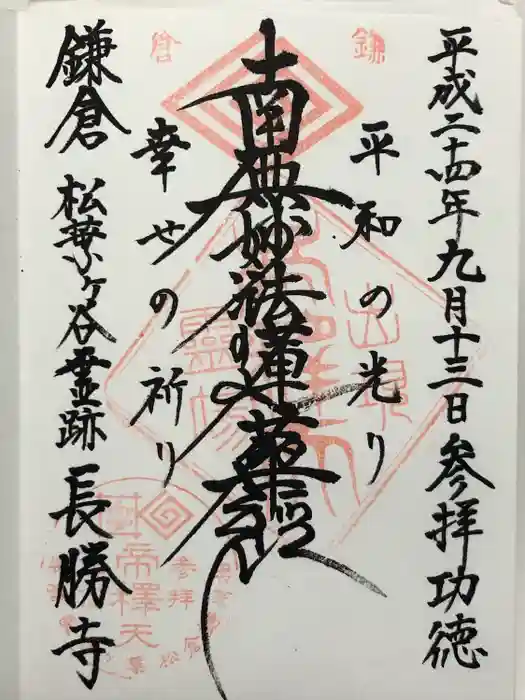 平成二十四年九月十三日参拝功徳
平和の光り
南無妙法蓮華経
幸せの祈り
鎌倉 松葉ヶ谷霊跡 長勝寺
鎌
倉
出現
霊場
帝釋天
参拝